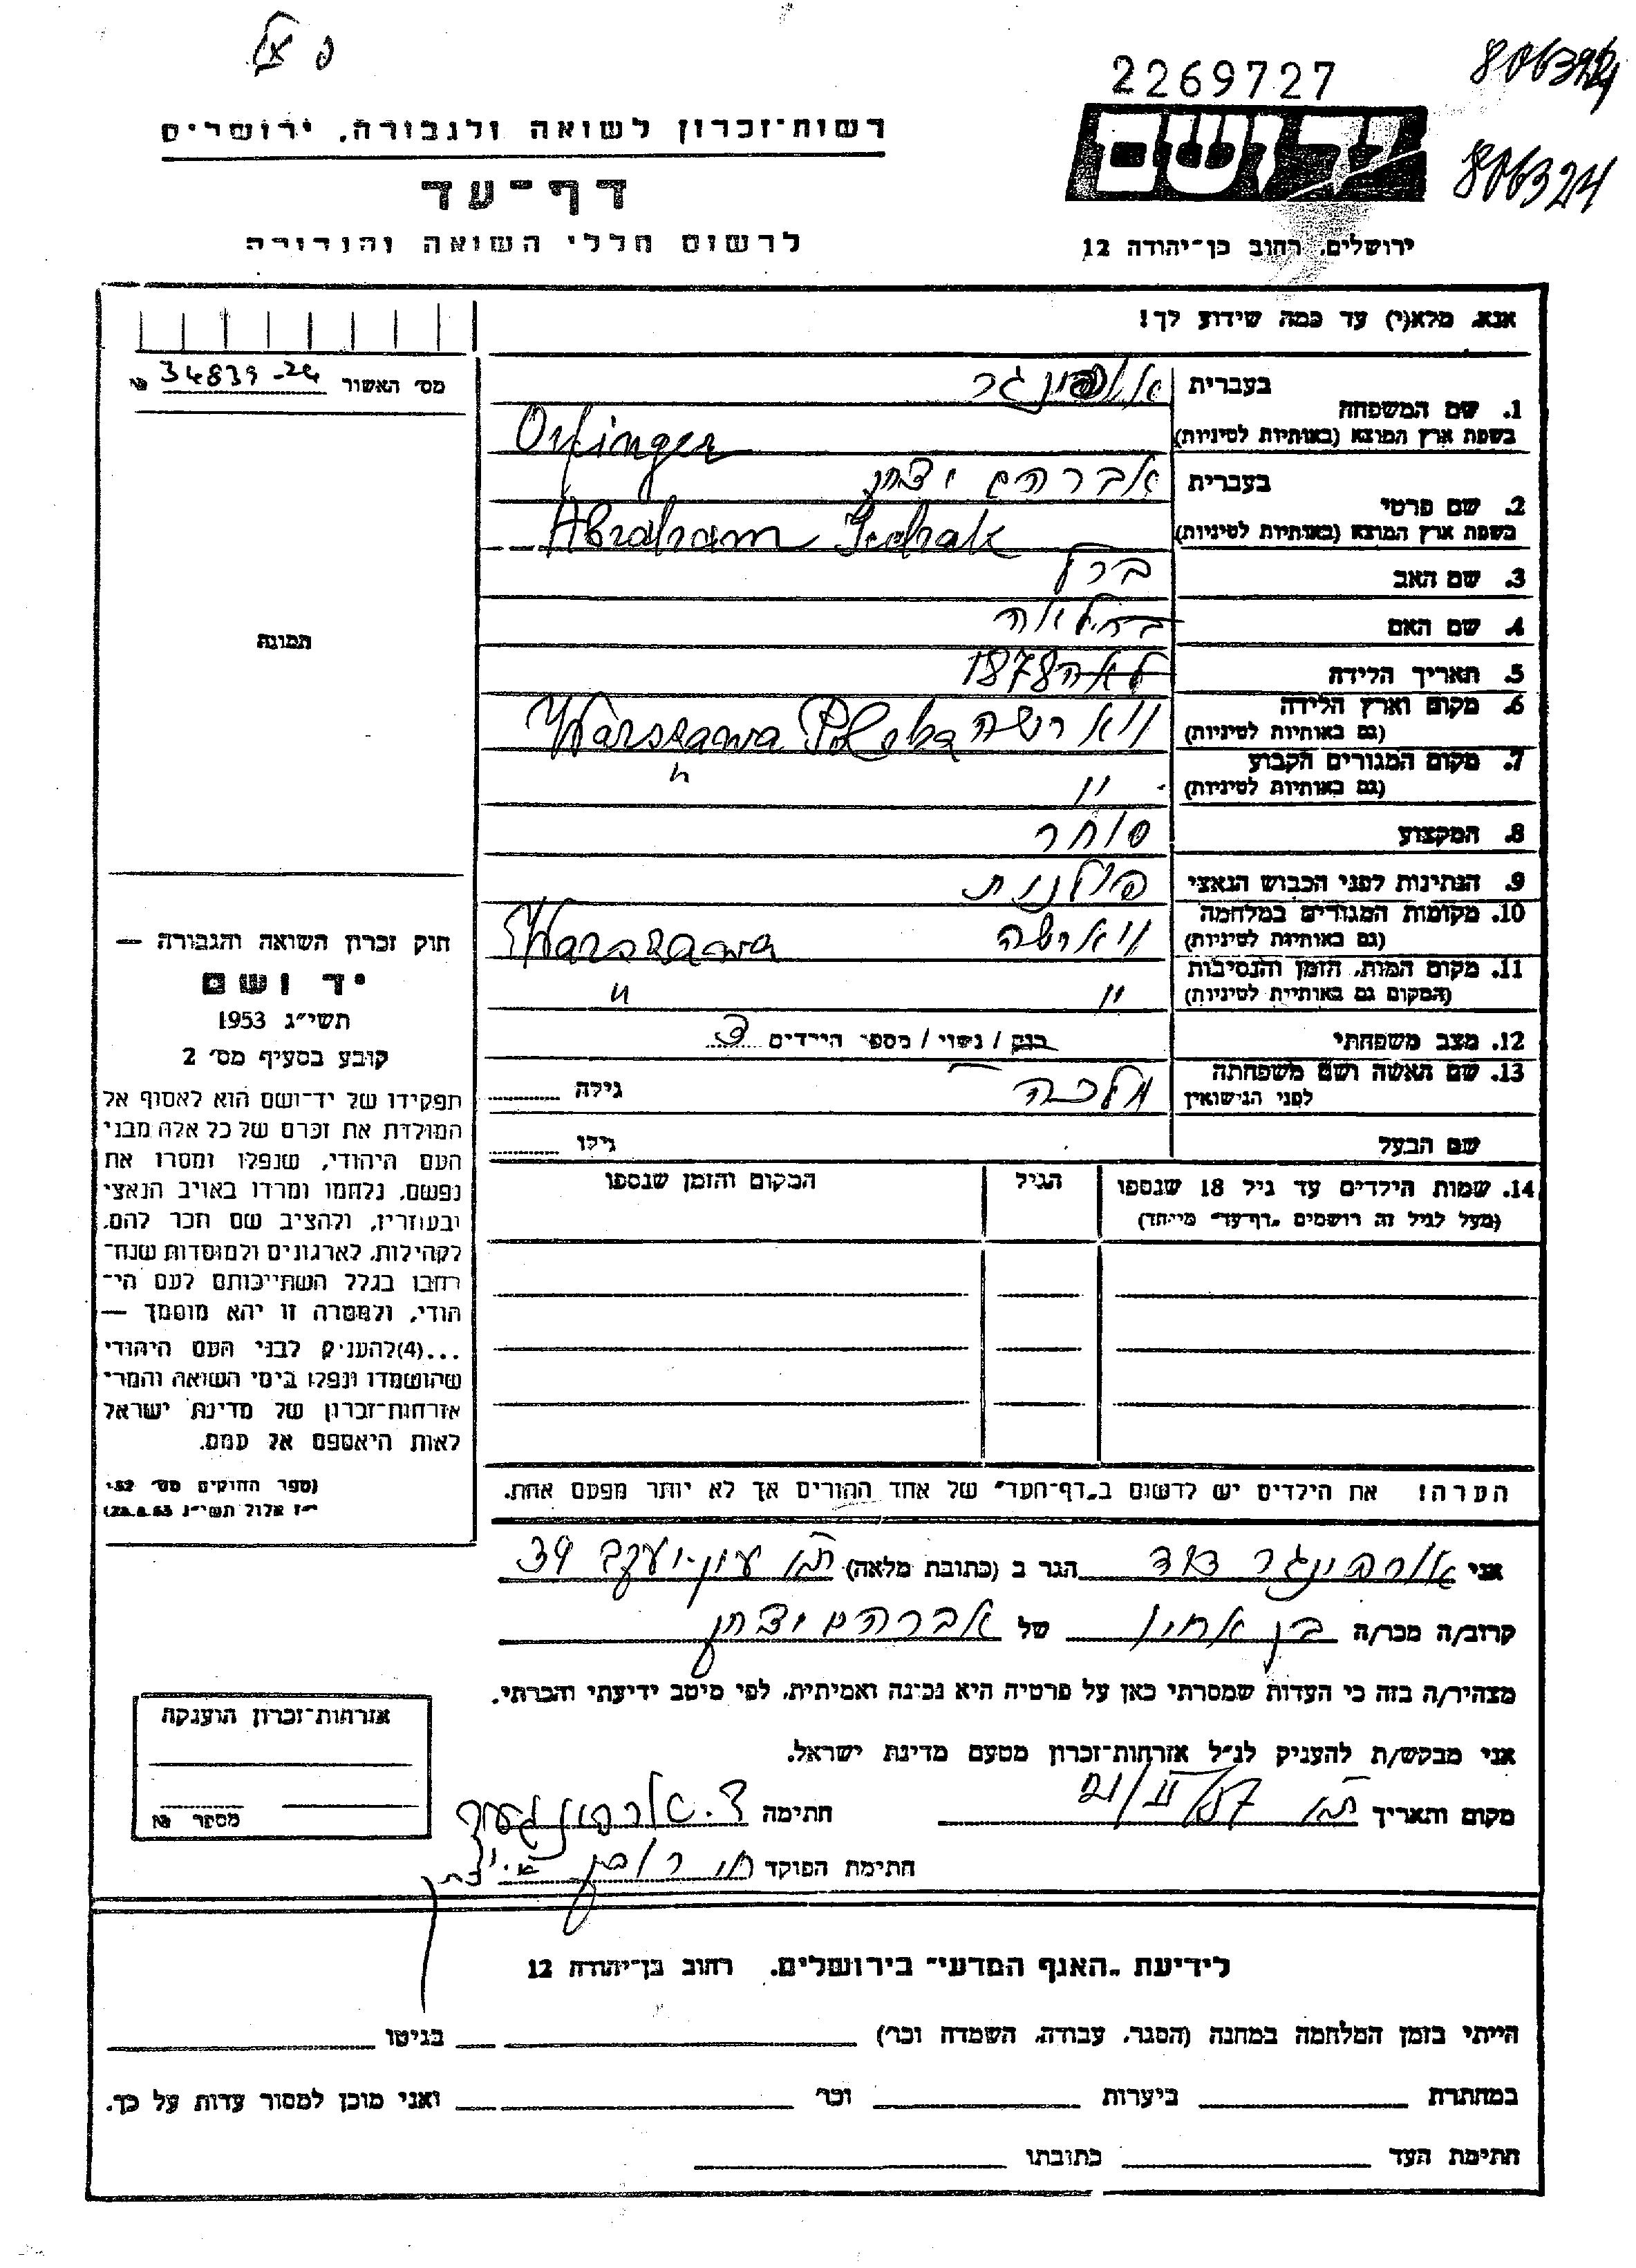 2269727
806324
רשות־זכרון לשואה ולגבורה, ירושלים
יד ושם
806324
דף־עד
לרשום חללי השואה והגבורה
ירושלים, רחוב בן־יהודה 12
אנא, מלא(י) עד כמה שידוע לך!
מס׳ האשור 34839-24 №
בעברית
1. שם המשפחה
בשפת ארץ המוצא (באותיות לטיניות) Orfinger
בעברית אברהם יצחק
2. שם פרטי
בשפת ארץ המוצא (באותיות לטיניות) Abraham
3. שם האב ברן
4. שם האם
תמונה
5. תאריך הלידה 1878
6. מקום וארץ הלידה ווארשה Warszawa Polska
(גם באותיות לטיניות)
7. מקום המגורים הקבוע
(גם באותיות לטיניות) " "
8. המקצוע סוחר
9. הנתינות לפני הכבוש הנאצי פולנית
10. מקומות המגורים במלחמה ווארשה Warszawa
(גם באותיות לטיניות)
11. מקום המות, הזמן והנסיבות
(המקום גם באותיות לטיניות) " "
12. מצב משפחתי רווק / נשוי / מספר הילדים 3
13. שם האשה ושם משפחתה מלכה גילה
לפני הנישואין
שם הבעל גילו
14. שמות הילדים עד גיל 18 שנספו הגיל המקום והזמן שנספו
(מעל לגיל זה רושמים "דף־עד" מיוחד)
חוק זכרון השואה והגבורה —
יד ושם
תשי״ג 1953
קובע בסעיף מס׳ 2
תפקידו של יד־ושם הוא לאסוף אל
המולדת את זכרם של כל אלה מבני
העם היהודי, שנפלו ומסרו את
נפשם, נלחמו ומרדו באויב הנאצי
ובעוזריו, ולהציב שם וזכר להם,
לקהילות, לארגונים ולמוסדות שנח־
רבו בגלל השתייכותם לעם הי־
הודי, ולמטרה זו יהא מוסמך —
...(4) להעניק לבני העם היהודי
שהושמדו ונפלו בימי השואה והמרי
אזרחות־זכרון של מדינת ישראל
לאות היאספם אל עמם.
(ספר החוקים מס׳ 132
י״ז אלול תשי״ג 28.8.53)
הערה! את הילדים יש לרשום ב"דף־העד" של אחד ההורים אך לא יותר מפעם אחת.
אני אורפינגר דוד הגר ב (כתובת מלאה) ת״א עין-יעקב 39
קרוב/ה מכר/ה בן אחיו של אברהם יצחק
מצהיר/ה בזה כי העדות שמסרתי כאן על פרטיה היא נכונה ואמיתית, לפי מיטב ידיעתי והכרתי.
אני מבקש/ת להעניק לנ״ל אזרחות־זכרון מטעם מדינת ישראל.
מקום ותאריך ת״א 21/II/57 חתימה ד. אורפינגר
חתימת הפוקד
אזרחות־זכרון הוענקה
מספר №
לידיעת "האגף המדעי" בירושלים, רחוב בן־יהודה 12
הייתי בזמן המלחמה במחנה (הסגר, עבודה, השמדה וכו׳) בגיטו
במחתרת ביערות וכו׳ ואני מוכן למסור עדות על כך.
חתימת העד כתובתו